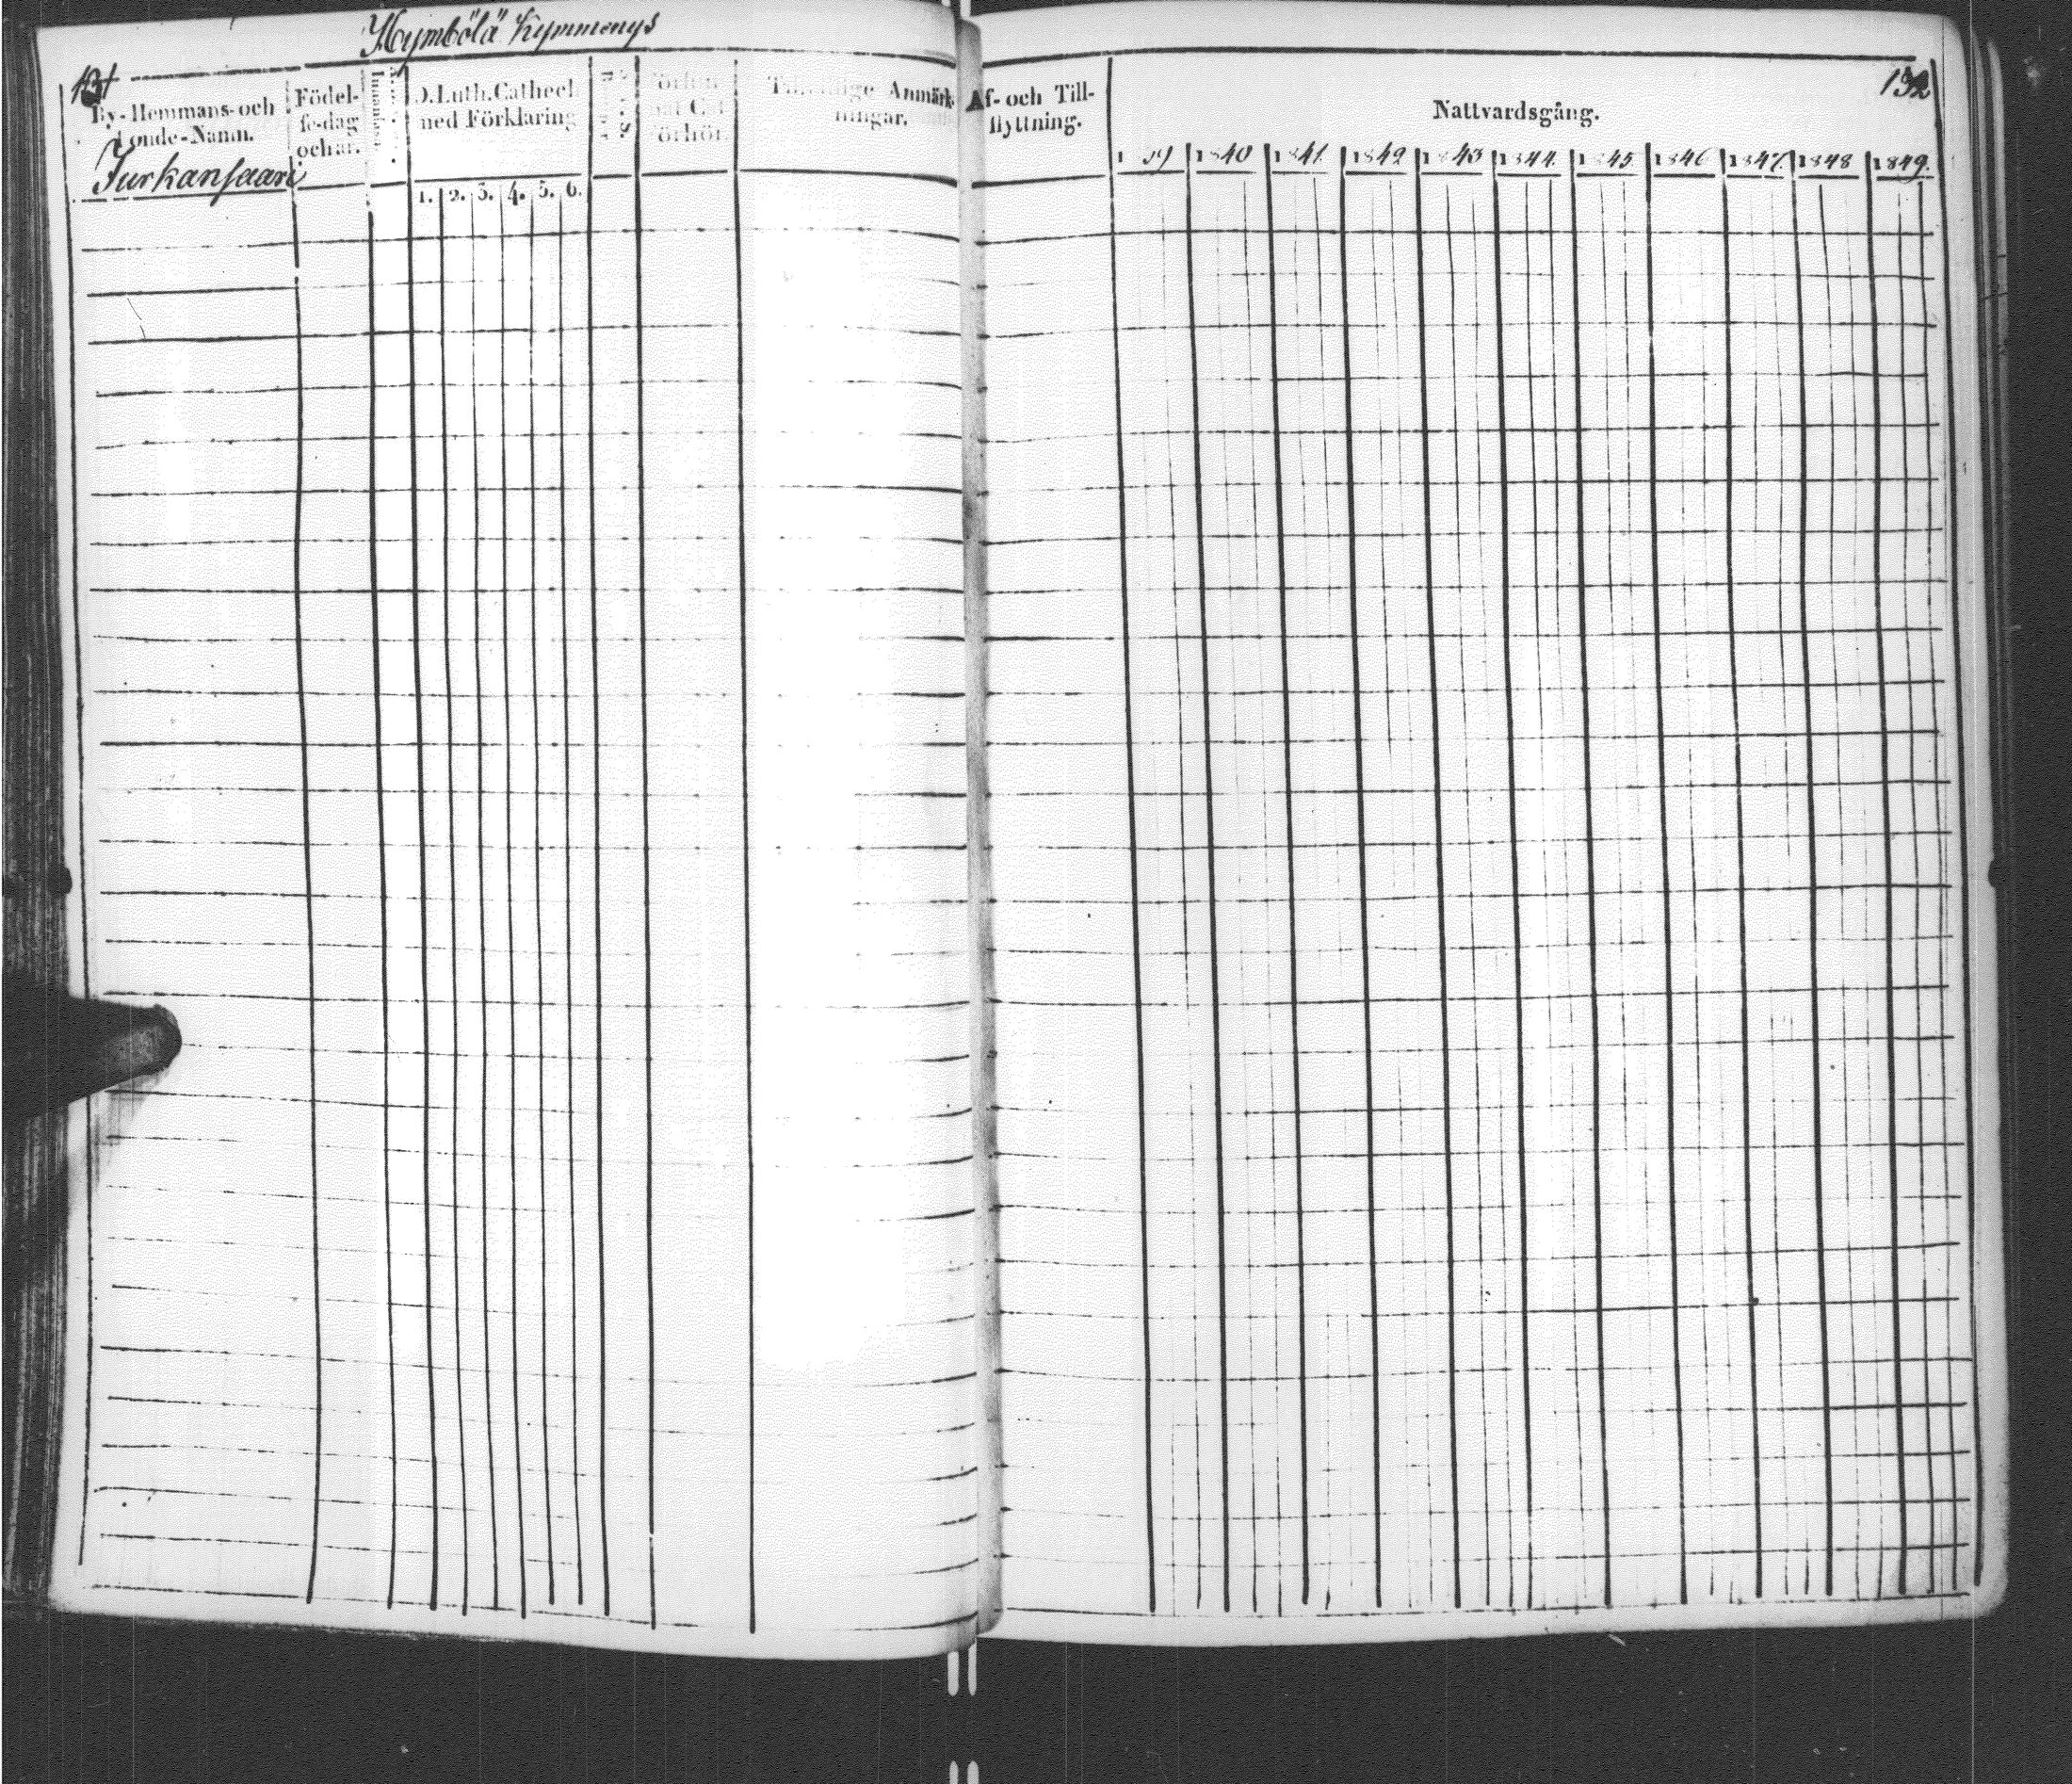 Hymbölä Kymmenys
131
By-Hemmans-och
Bonde-Namn.
Födel-
se-dag
och år.
D.Luth.Cathech.
med Förklaring
1. 2. 3. 4. 5. 6.
Anmärk-
ningar.
Af- och Till-
flyttning.
Nattvardsgång.
132
1840 1841. 1842 1843 1844 1845 1846 1847. 1848 1849.
Turkansaari